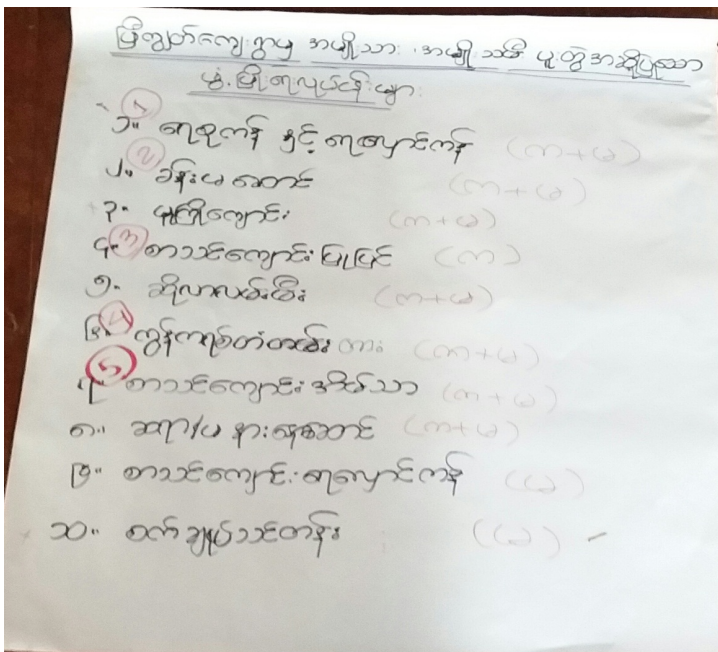 ပြီတွတ်ကျေးရွာမှ အမျိုးသား၊ အမျိုးသမီး ပူးတွဲအဆိုပြုသော
ဖွံ့ဖြိုးရေးလုပ်ငန်းများ
၁။ ရေစုကန် နှင့် ရေလှောင်ကန် (က+မ)
၂။ ခန်းမဆောင် (က+မ)
၃။ မူကြိုကျောင်း (က+မ)
၄။ စာသင်ကျောင်းပြုပြင် (က)
၅။ ဆိုလာလမ်းမီး (က+မ)
၆။ ကွန်ကရစ်တံတမ်း တား (က+မ)
၇။ စာသင်ကျောင်းအိမ်သာ (က+မ)
၈။ ဆရာ/မ နားနေဆောင် (က+မ)
၉။ စာသင်ကျောင်းရေလှောင်ကန် (မ)
၁၀။ စက်ချုပ်သင်တန်း (မ)